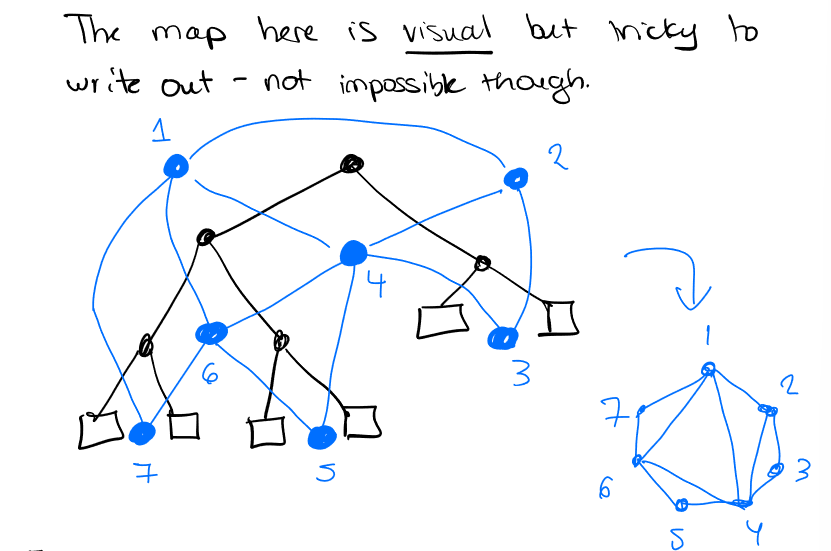 The map here is visual but tricky to
write out - not impossible though.
1
2
4
6
3
7
5
1
2
7
3
6
5
4